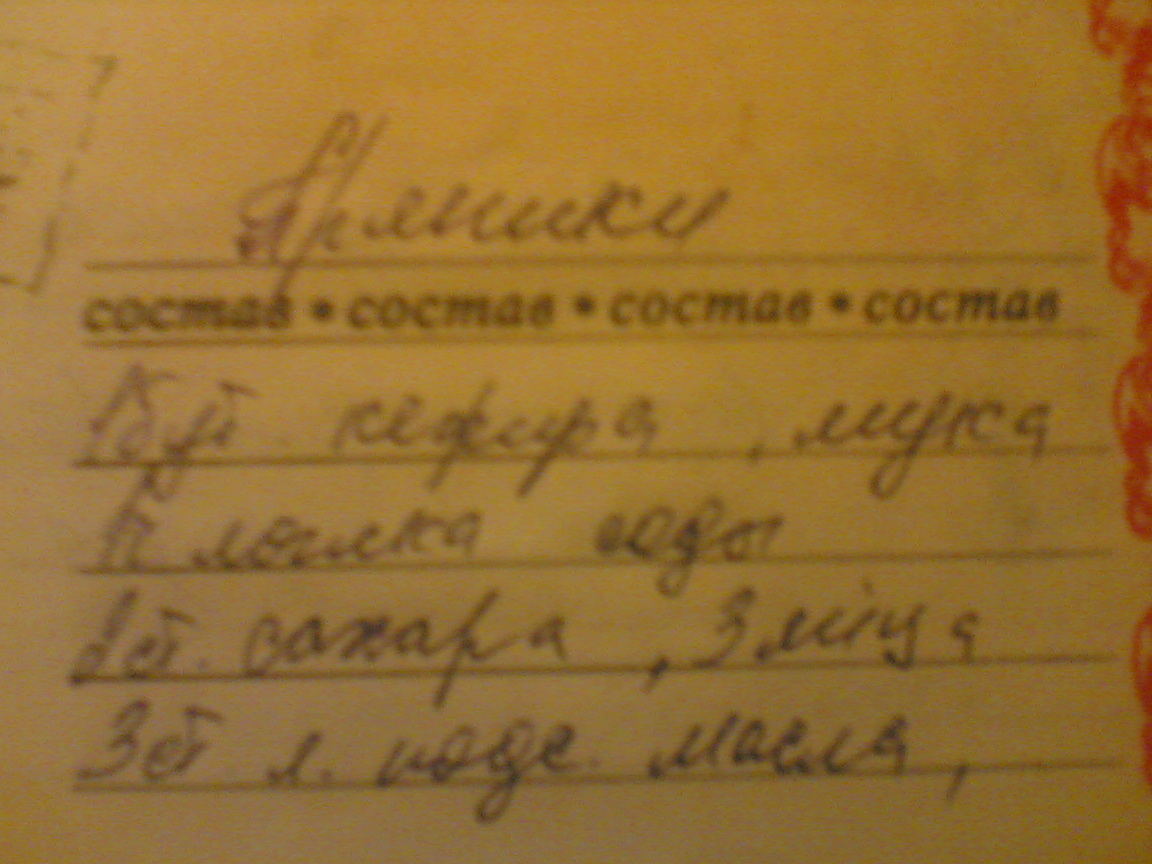 Пряники
состав • состав • состав • состав
1 бут кефира, мука
1 ч ложка соды
1 ст. сахара, 3 яйца
3 ст л. подс. масла,